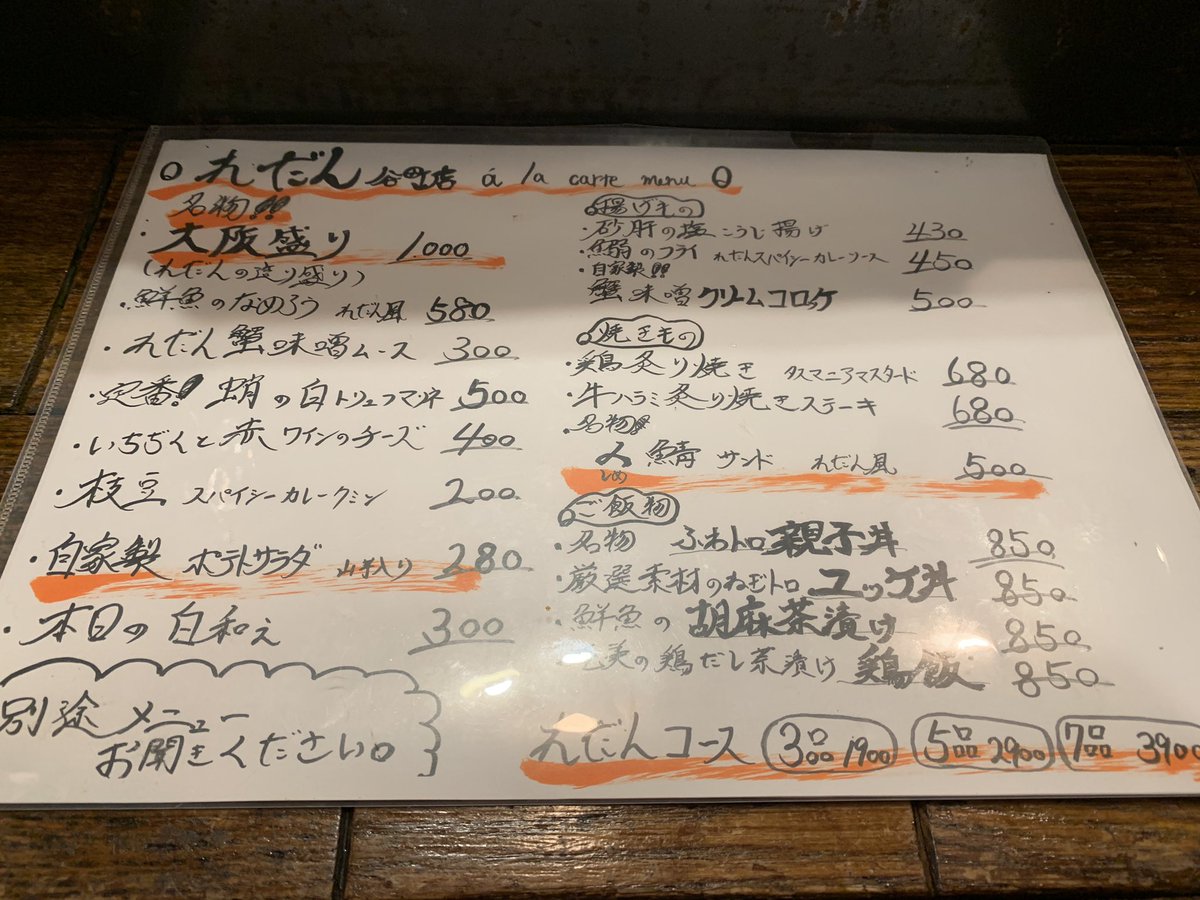 れだん 谷町店 á la carte menu
名物!!
・大阪盛り 1,000
(れだんの造り盛り)
・鮮魚のなめろう れだん風 580
・れだん蟹味噌ムース 300
・定番!蛸の白トリュフマリネ 500
・いちぢくと赤ワインのチーズ 400
・枝豆 スパイシーカレークミン 200
・自家製 ポテトサラダ 入り 280
・本日の白和え 300
別途メニュー
お聞きください。
揚げもの
・砂肝の塩こうじ揚げ 430
・鰯のフライ れだんスパイシーカレーソース 450
・自家製!!
蟹味噌クリームコロッケ 500
焼きもの
・鶏炙り焼き タスマニアマスタード 680
・牛ハラミ炙り焼きステーキ 680
・名物!!
〆鯖サンド れだん風 500
しめ
ご飯物
・名物 ふわトロ親子丼 850
・厳選素材のねぎトロユッケ丼 850
・鮮魚の胡麻茶漬け 850
の鶏だし茶漬け 鶏飯 850
れだんコース 3品 1900 5品 2900 7品 3900